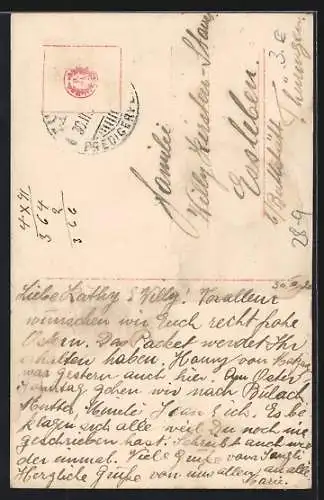 PREDIGER
Familie
Willy Kersten-
Essleben.
b/ Buttstädt
Thüringen
28-9
4 x 91
364
2
366
Liebe Kathy & Willy! Vor allem
wünschen wir Euch recht frohe
Ostern. Das Packet werdet Ihr
erhalten haben. Hanny von
war gestern auch hier. Am Oster
Sonntag gehen wir nach Bülach
Mutter, Jean & ich. Es be
klagen sich alle weil Du noch nie
geschrieben hast. Schreibt auch wie
der einmal. Viele Grüße vom
Herzliche Grüße von uns allen an alle
Marie.